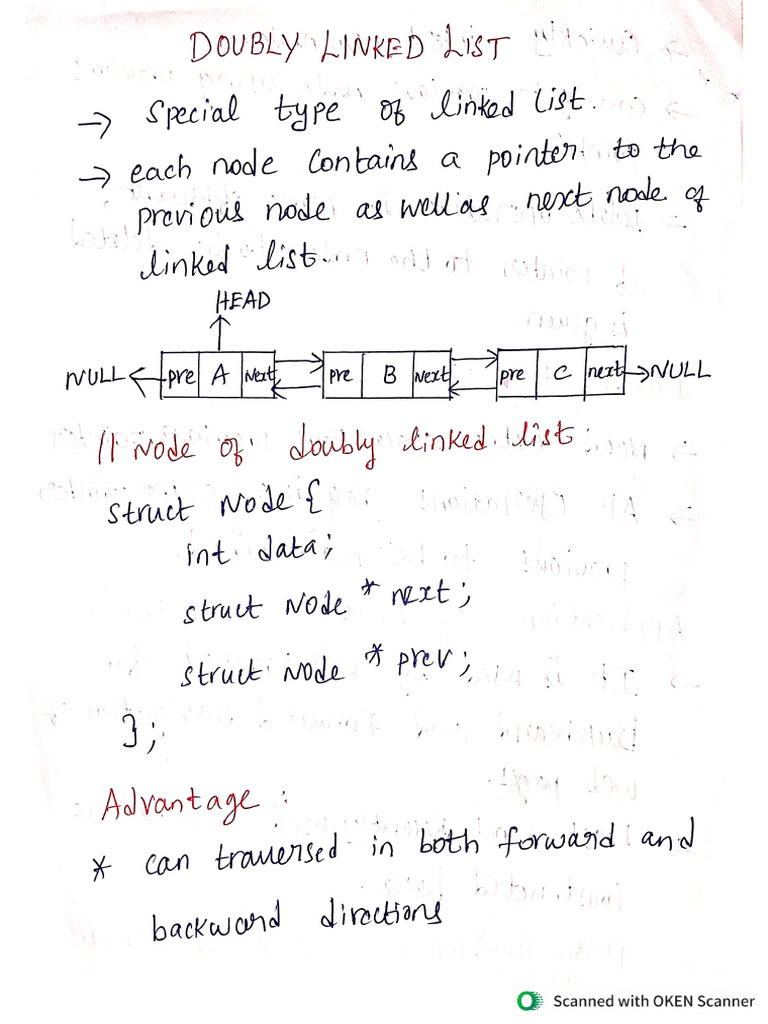 DOUBLY LINKED LIST
→ special type of linked list.
→ each node contains a pointer to the
previous node as well as next node of
linked list.
HEAD
NULL pre A Next pre B Next pre C next NULL
// Node of doubly linked list:
struct Node {
int data;
struct Node * next;
struct Node * prev;
};
Advantage :
* can traversed in both forward and
backward directions
Scanned with OKEN Scanner